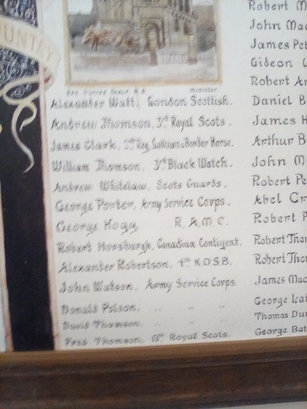 COUNTRY
Minister.
Alexander Watt, Gordon Scottish.
Andrew Thomson, 3rd Royal Scots.
James Clark, Border Horse.
William Thomson, 3rd Black Watch.
Andrew Whitelaw, Scots Guards.
George Porter, Army Service Corps.
George Hogg, R.A.M.C.
Robert Horsburgh, Canadian Contigent.
Alexander Robertson, 4th K.O.S.B.
John Watson, Army Service Corps.
Donald Polson, " " "
David Thomson, " " "
Fred Thomson, Royal Scots.
Robert M
John Mac
James Pet
Gideon
Robert
Daniel B
James H
Arthur B
John M
Robert Pe
Abel Cr
Robert P
Robert Tho
Robert Tho
James Mac
George
Thomas Du
George Bat